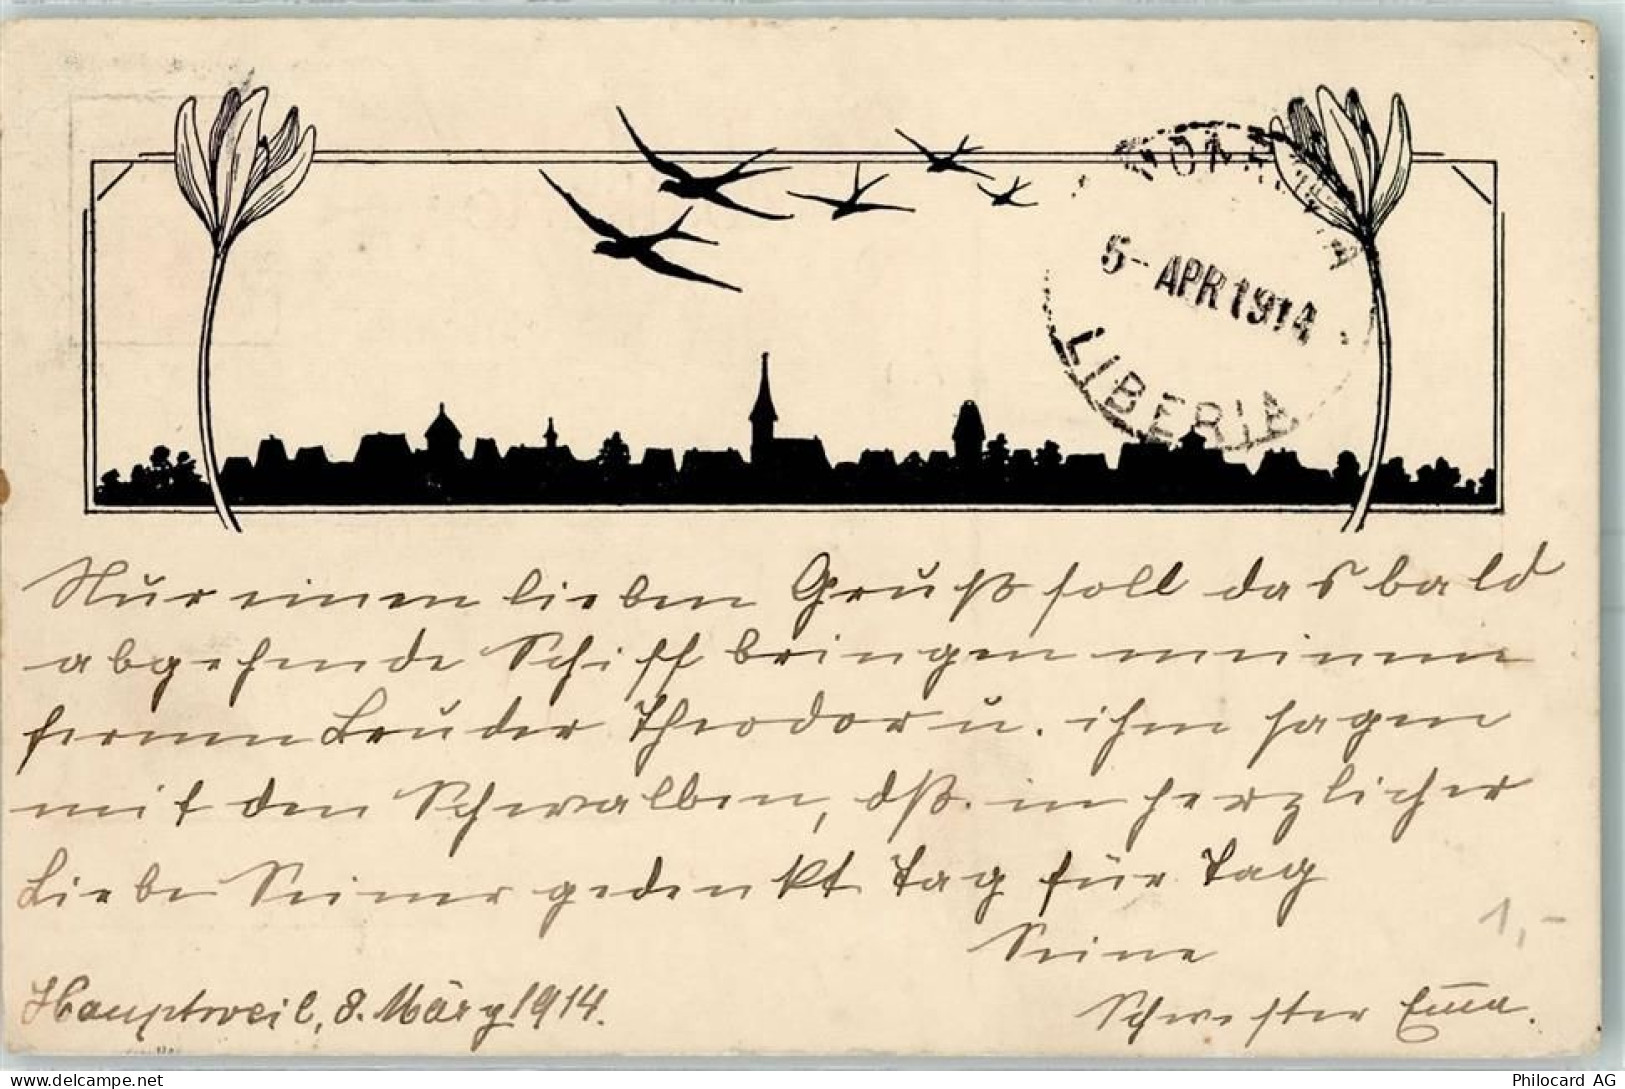 MONROVIA
5- APR 1914
LIBERIA
Nur einen lieben Gruß soll das bald
abgehende Schiff bringen meinem
fernen Bruder Theodor u. ihm sagen
mit den Schwalben, dß. in herzlicher
Liebe Seiner gedenkt Tag für Tag
Seine
Schwester Emma.
Hauptweil, 8. März 1914.
1,-
delcampe.net
Philocard AG